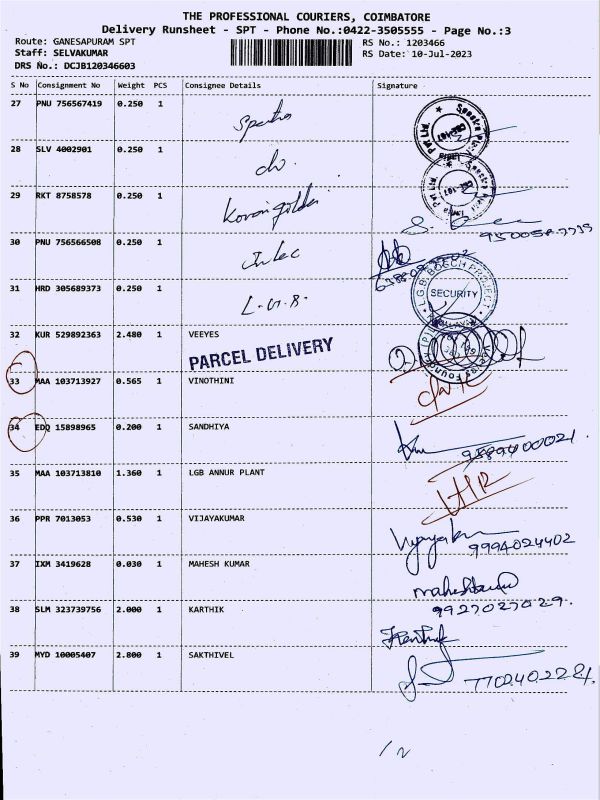 THE PROFESSIONAL COURIERS, COIMBATORE
Delivery Runsheet - SPT - Phone No.:0422-3505555 - Page No.:3
Route: GANESAPURAM SPT
Staff: SELVAKUMAR
DRS No.: DCJB120346603
RS No.: 1203466
RS Date: 10-Jul-2023
S No Consignment No Weight PCS Consignee Details Signature
27 PNU 756567419 0.250 1 Spectra
28 SLV 4002901 0.250 1 do.
29 RKT 8758578 0.250 1
30 PNU 756566508 0.250 1
31 HRD 305689373 0.250 1 L.G.B.
SECURITY
32 KUR 529892363 2.480 1 VEEYES
PARCEL DELIVERY
33 MAA 103713927 0.565 1 VINOTHINI
34 EDQ 15898965 0.200 1 SANDHIYA
35 MAA 103713810 1.360 1 LGB ANNUR PLANT
36 PPR 7013053 0.530 1 VIJAYAKUMAR
9994024402
37 IXM 3419628 0.030 1 MAHESH KUMAR
9927027029.
38 SLM 323739756 2.000 1 KARTHIK
Karthik
39 MYD 10005407 2.800 1 SAKTHIVEL